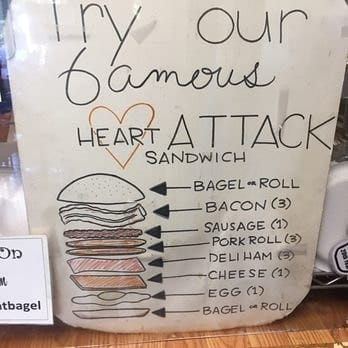 Try our
famous
HEART ATTACK
SANDWICH
BAGEL OR ROLL
BACON (3)
SAUSAGE (1)
PORK ROLL (3)
DELI HAM (3)
CHEESE (1)
EGG (1)
BAGEL OR ROLL
On
M
atbagel